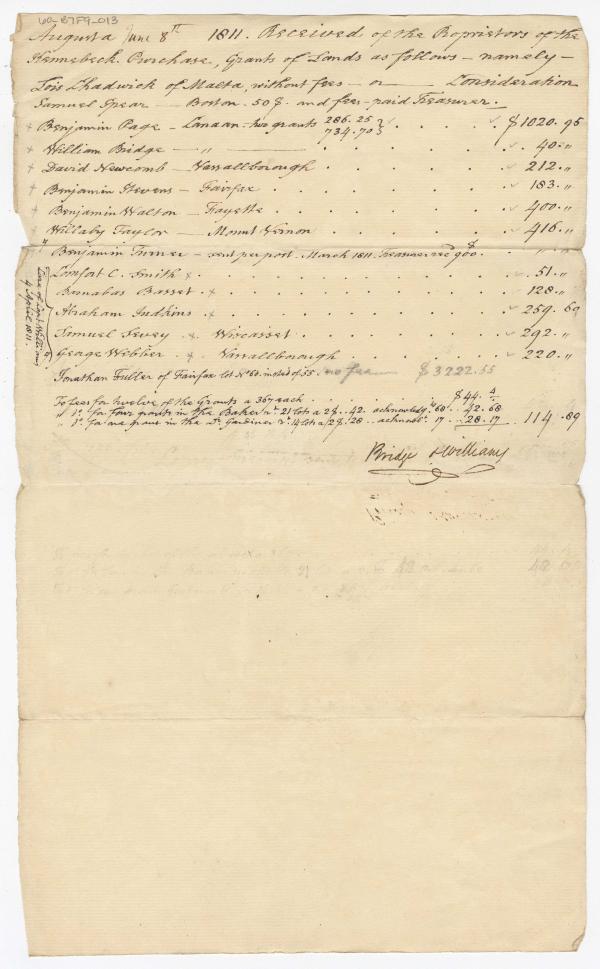 60-B7F9-013
Augusta June 8th 1811. Received of the Proprietors of the
Kennebeck Purchase, Grants of Lands as follows – namely –
Lois Chadwick of Malta, without fees – or — Consideration
Samuel Spear — Boston. 50$. and fees – paid Treasurer.
+ Benjamin Page – Canaan – two grants 286.25 } . . . . $1020.95
734.70 }
+ William Bridge — " — . . . . 40. "
+ David Newcomb – Vassallborough . . . . 212. "
+ Benjamin Stevens – Fairfax . . . . 183. "
+ Benjamin Walton – Fayette . . . . 400. "
+ Willaby Taylor – Mount Vernon . . . . 416. "
" Benjamin Turner – sent per post. March 1811. Treasurer rec'd $900. . " "
Comfort C. Smith + . . . . 51. "
Barnabas Basset. + . . . . 128. "
Abraham Judkins + . . . . 259. 60
Samuel Sevey + Wiscasset. . . . . 292. "
George Webber + Vassallborough . . . . 220. "
4 April 1811.
Jonathan Fuller of Fairfax lot No 60. instead of 55. no fee — $3222.55
To fees for twelve of the Grants a 367 each . . . . $44. 4
" Do. for four grants in the Baker 21 lots a 2$. . 42. acknowledg. 68 . 42. 68
" Do. for one grant in the Gardiner 14 lots a 2$. 28 . . acknowl. 17 . 28. 17 114 .89
Bridge & Williams